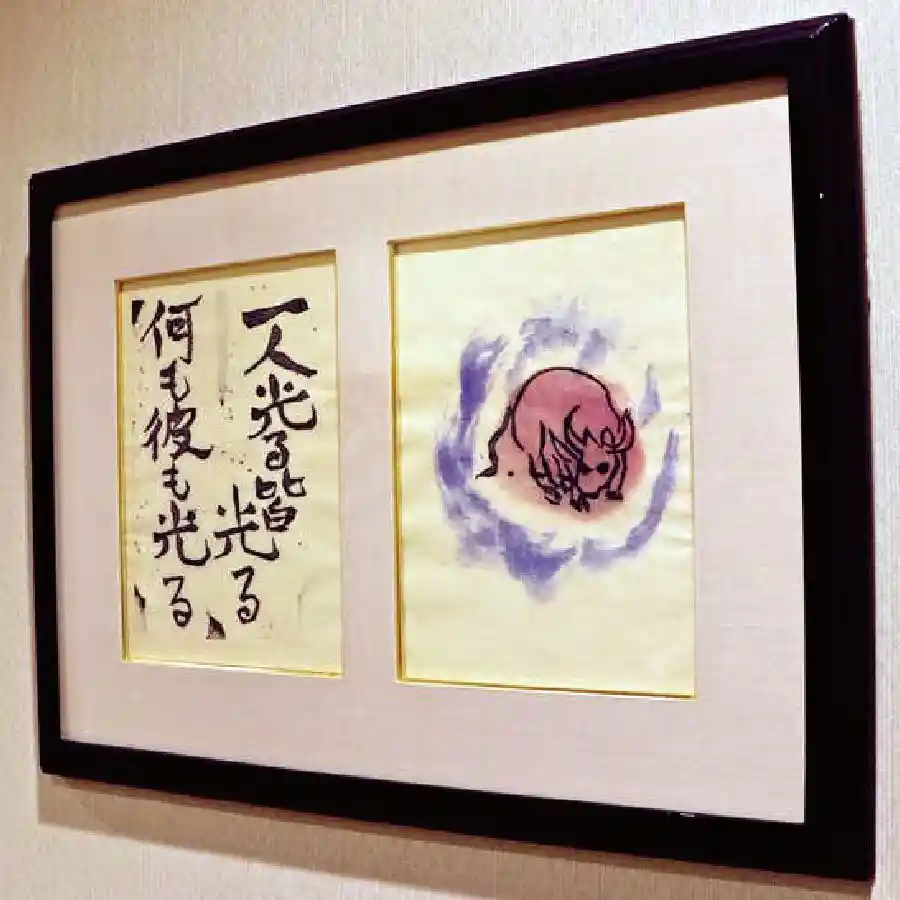 一人光る皆光る
何も彼も光る